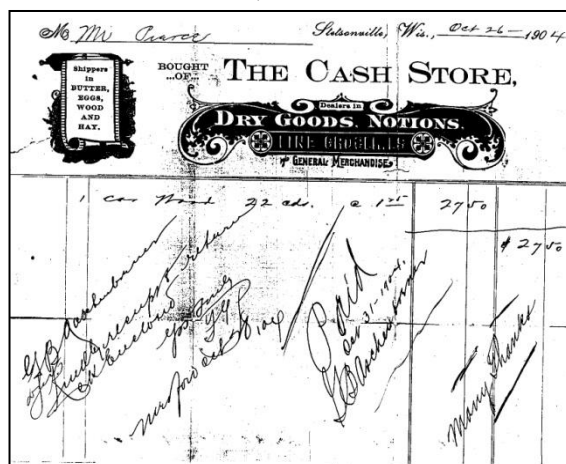 M Mr Pearce Stetsonville, Wis., Oct 26 - 1904
Shippers
in
BUTTER,
EGGS,
WOOD
AND
HAY.
BOUGHT
...OF...
THE CASH STORE,
Dealers in
DRY GOODS, NOTIONS,
FINE GROCERIES
GENERAL MERCHANDISE
1 Car Wood 22 cds. @ 1 25 27 50
$ 27 50
Kindly receipt & return
Ck Enclosed
Yours Truly
Paid
Oct 31 - 1904
G B Aschenbrener
Many Thanks